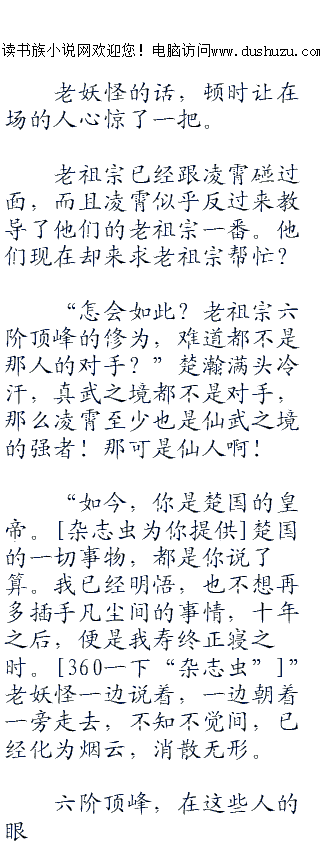 读书族小说网欢迎您！电脑访问www.dushuzu.com
老妖怪的话，顿时让在
场的人心惊了一把。
老祖宗已经跟凌霄碰过
面，而且凌霄似乎反过来教
导了他们的老祖宗一番。他
们现在却来求老祖宗帮忙？
“怎会如此？老祖宗六
阶顶峰的修为，难道都不是
那人的对手？”楚瀚满头冷
汗，真武之境都不是对手，
那么凌霄至少也是仙武之境
的强者！那可是仙人啊！
“如今，你是楚国的皇
帝。[杂志虫为你提供]楚国
的一切事物，都是你说了
算。我已经明悟，也不想再
多插手凡尘间的事情，十年
之后，便是我寿终正寝之
时。[360一下“杂志虫”]”
老妖怪一边说着，一边朝着
一旁走去，不知不觉间，已
经化为烟云，消散无形。
六阶顶峰，在这些人的
眼